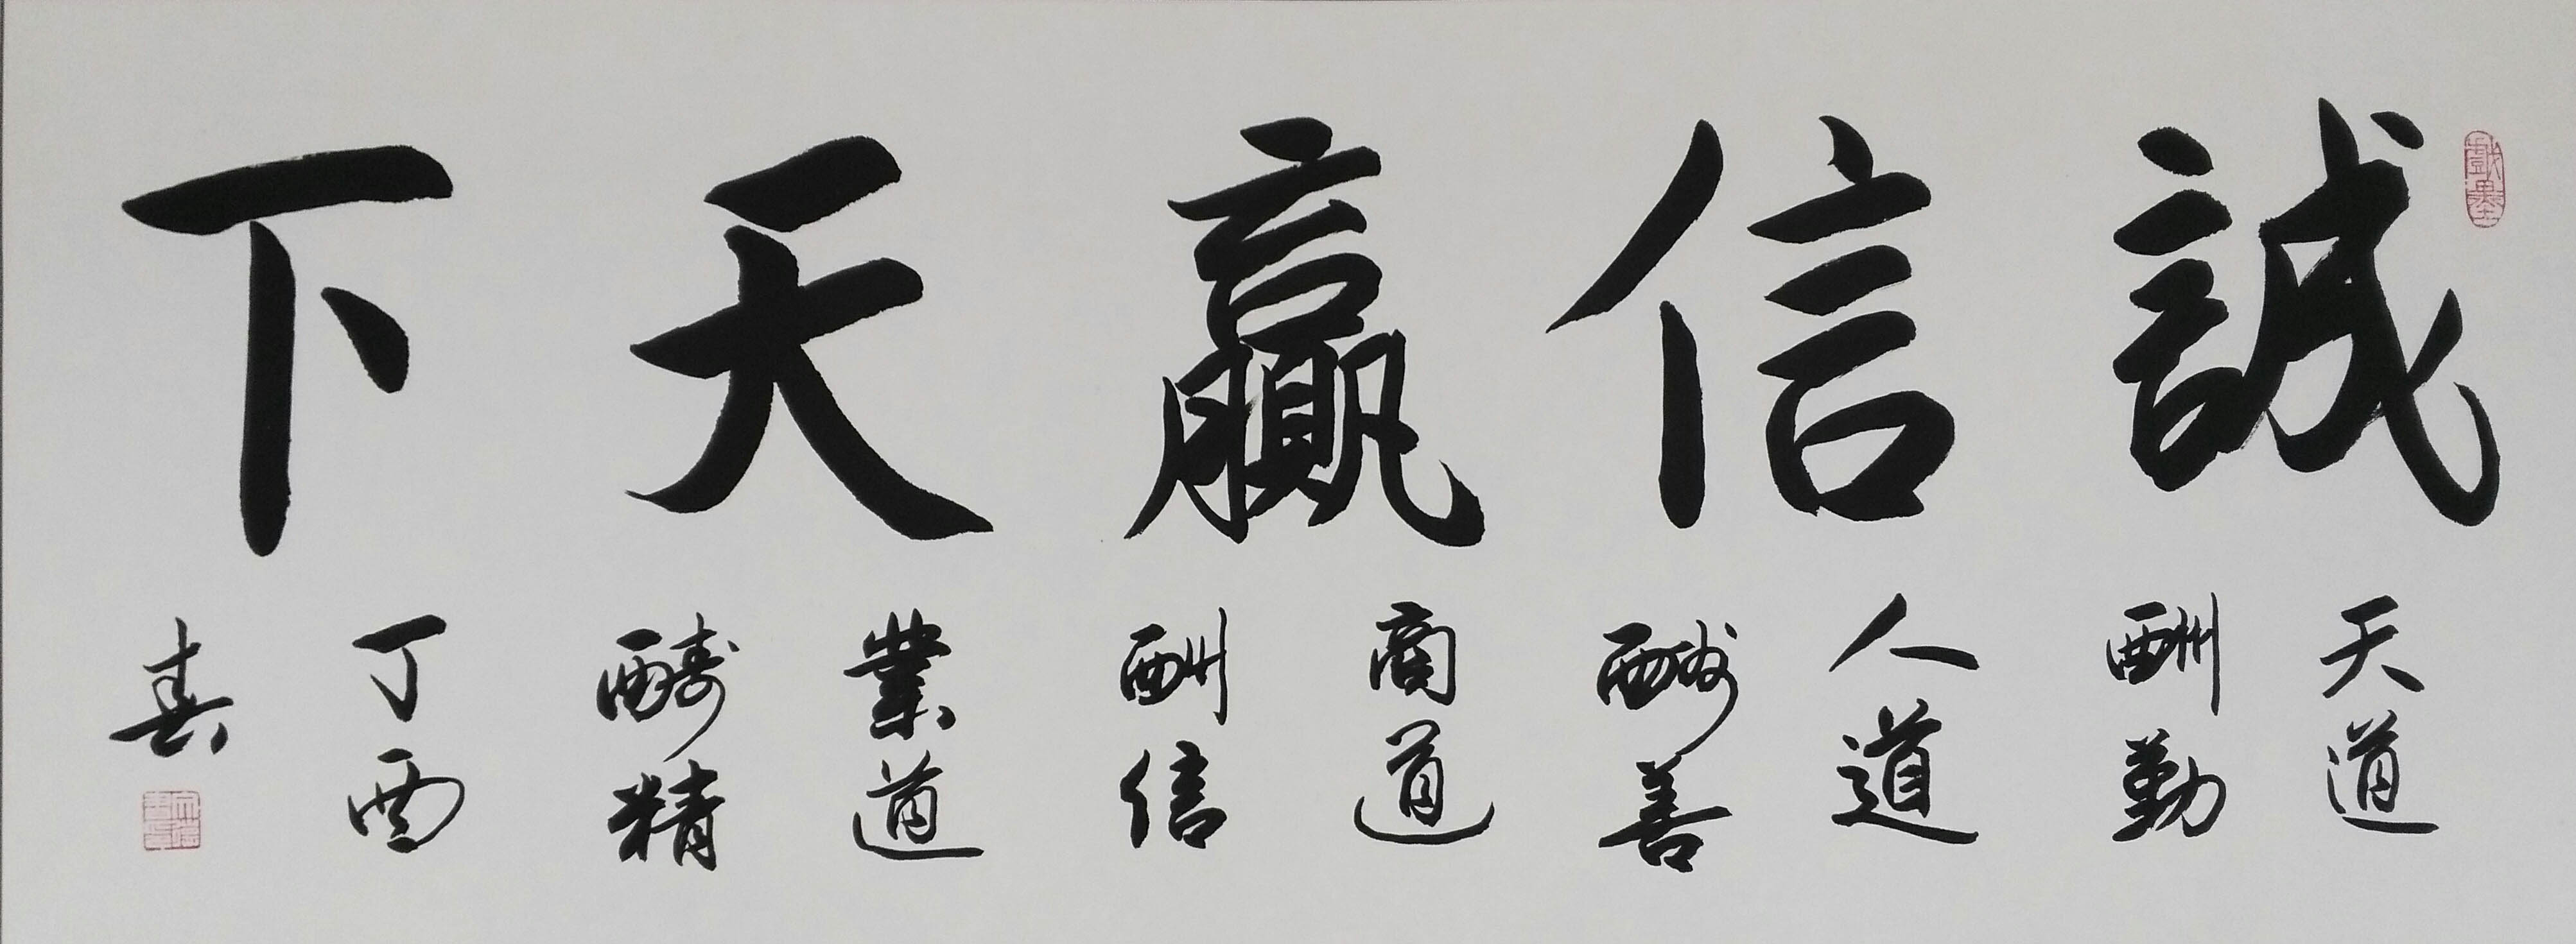 誠信贏天下
天道
酬勤
人道
酬善
商道
酬信
業道
酬精
丁酉
春
戲墨